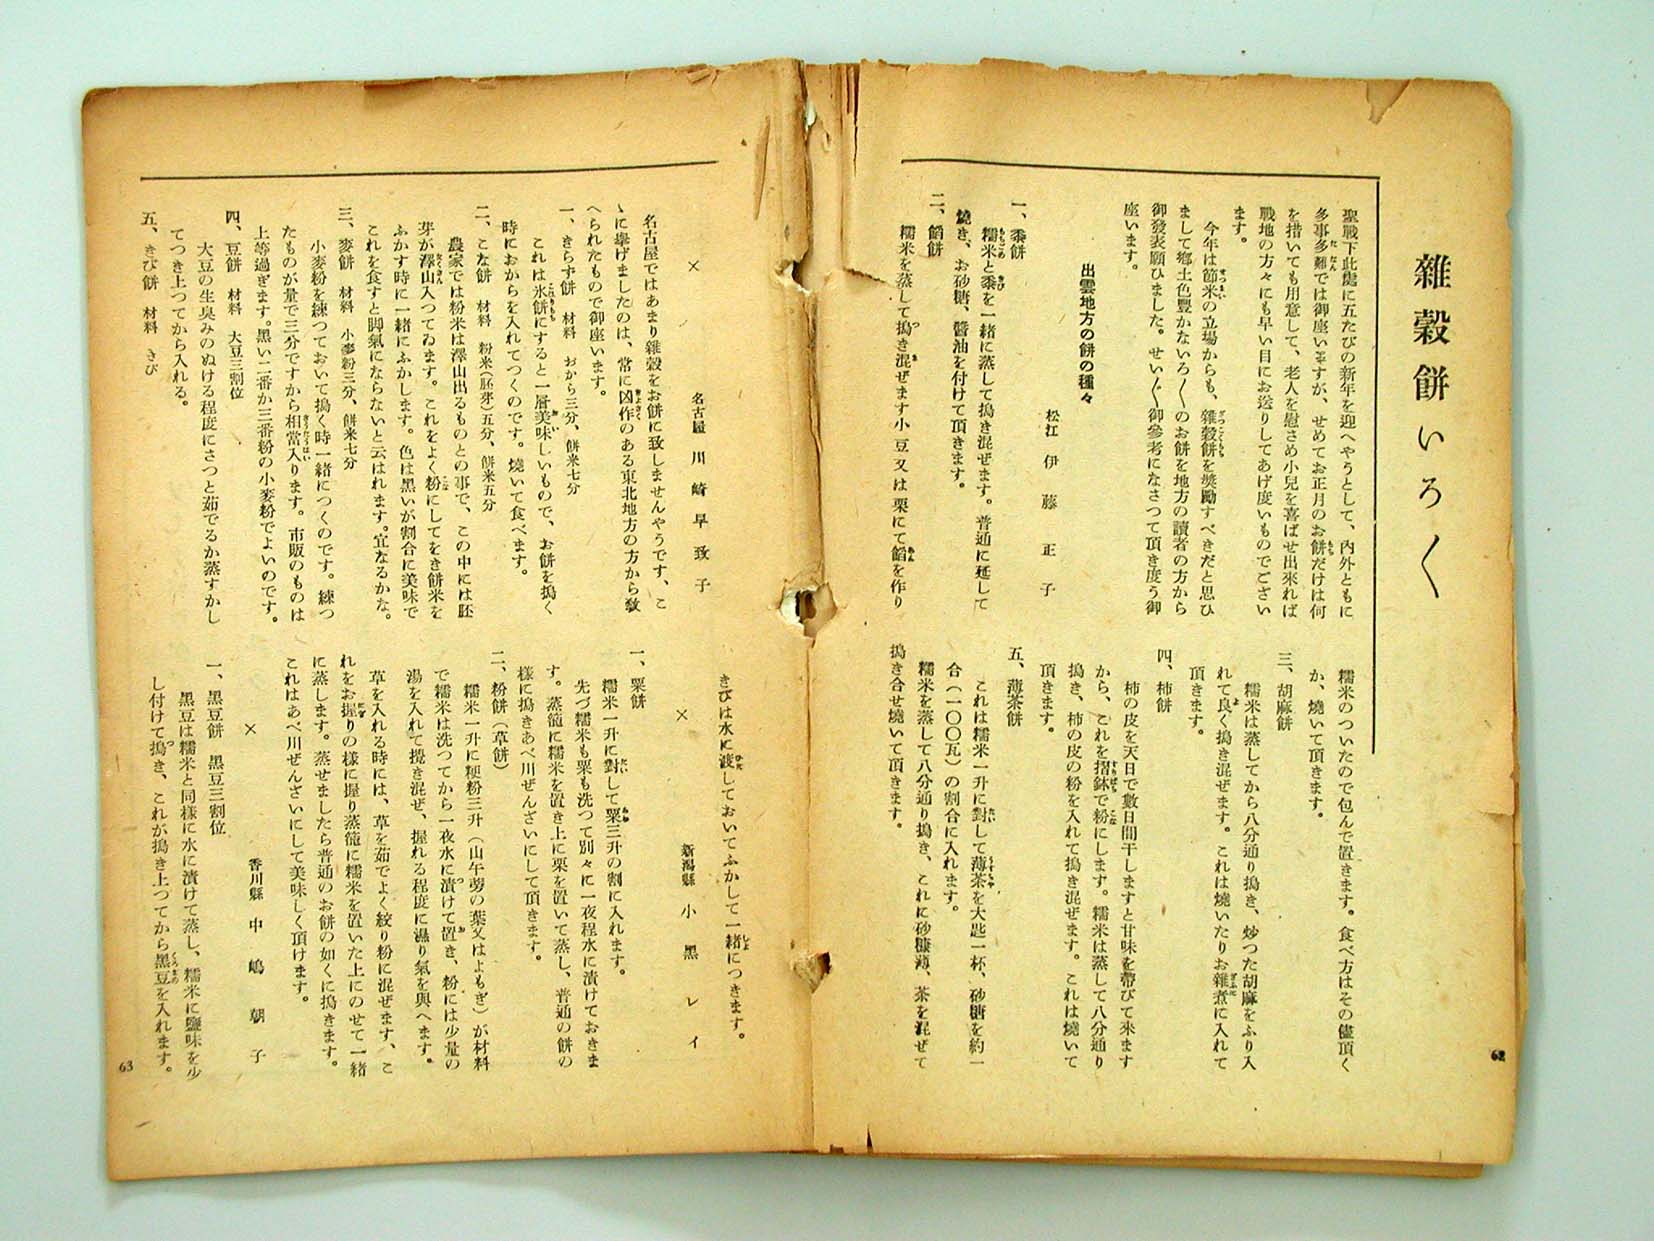 雜穀餅いろ〱
聖戰下此處に五たびの新年を迎へやうとして、內外ともに
多事多難では御座いますが、せめてお正月のお餅だけは何
を措いても用意して、老人を慰さめ小兒を喜ばせ出來れば
戰地の方々にも早い目にお送りしてあげ度いものでござい
ます。
今年は節米の立場からも、雜穀餅を奬勵すべきだと思ひ
まして鄕土色豐かないろ〱のお餅を地方の讀者の方から
御發表願ひました。せい〲御參考になさつて頂き度う御
座います。
出雲地方の餅の種々
松江 伊藤正子
一、黍餅
糯米と黍を一緖に蒸して搗き混ぜます。普通に延して
燒き、お砂糖、醬油を付けて頂きます。
二、餡餅
糯米を蒸して搗き混ぜます小豆又は栗にて餡を作り
糯米のついたので包んで置きます。食べ方はその儘頂く
か、燒いて頂きます。
三、胡麻餅
糯米は蒸してから八分通り搗き、炒つた胡麻をふり入
れて良く搗き混ぜます。これは燒いたりお雜煮に入れて
頂きます。
四、柿餅
柿の皮を天日で數日間干しますと甘味を帶びて來ます
から、これを摺鉢で粉にします。糯米は蒸して八分通り
搗き、柿の皮の粉を入れて搗き混ぜます。これは燒いて
頂きます。
五、薄茶餅
これは糯米一升に對して薄茶を大匙一杯、砂糖を約一
合(一〇〇瓦)の割合に入れます。
糯米を蒸して八分通り搗き、これに砂糖薄、茶を混ぜて
搗き合せ燒いて頂きます。
62
×
名古屋 川崎早致子
名古屋ではあまり雜穀をお餅に致しませんやうです、こ
ゝに擧げましたのは、常に凶作のある東北地方の方から敎
へられたもので御座います。
一、きらず餅 材料 おから三分、餅米七分
これは氷餅にすると一層美味しいもので、お餅を搗く
時におからを入れてつくのです。燒いて食べます。
二、こな餅 材料 粉米(胚芽)五分、餅米五分
農家では粉米は澤山出るものとの事で、この中には胚
芽が澤山入つてゐます。これをよく粉にしてをき餅米を
ふかす時に一緖にふかします。色は黑いが割合に美味で
これを食すと脚氣にならないと云はれます。宜なるかな。
三、麥餅 材料 小麥粉三分、餅米七分
小麥粉を練つておいて搗く時一緖につくのです。練つ
たものが量で三分ですから相當入ります。市販のものは
上等過ぎます。黑い二番か三番粉の小麥粉でよいのです。
四、豆餅 材料 大豆三割位
大豆の生臭みのぬける程度にさつと茹でるか蒸すかし
てつき上つてから入れる。
五、きび餅 材料 きび
きびは水に浸しておいてふかして一緖につきます。
×
新潟縣 小黑レイ
一、粟餅
糯米一升に對して粟三升の割に入れます。
先づ糯米も粟も洗つて別々に一夜程水に漬けておきま
す。蒸籠に糯米を置き上に粟を置いて蒸し、普通の餅の
樣に搗きあべ川ぜんざいにして頂きます。
二、粉餅(草餅)
糯米一升に粳粉三升(山午蒡の葉又はよもぎ)が材料
で糯米は洗つてから一夜水に漬けて置き、粉には少量の
湯を入れて攪き混ぜ、握れる程度に濕り氣を與へます。
草を入れる時には、草を茹でよく絞り粉に混ぜます、こ
れをお握りの樣に握り蒸籠に糯米を置いた上にのせて一緖
に蒸します。蒸せましたら普通のお餅の如くに搗きます。
これはあべ川ぜんざいにして美味しく頂けます。
×
香川縣 中嶋朝子
一、黑豆餅 黑豆三割位
黑豆は糯米と同樣に水に漬けて蒸し、糯米に鹽味を少
し付けて搗き、これが搗き上つてから黑豆を入れます。
63